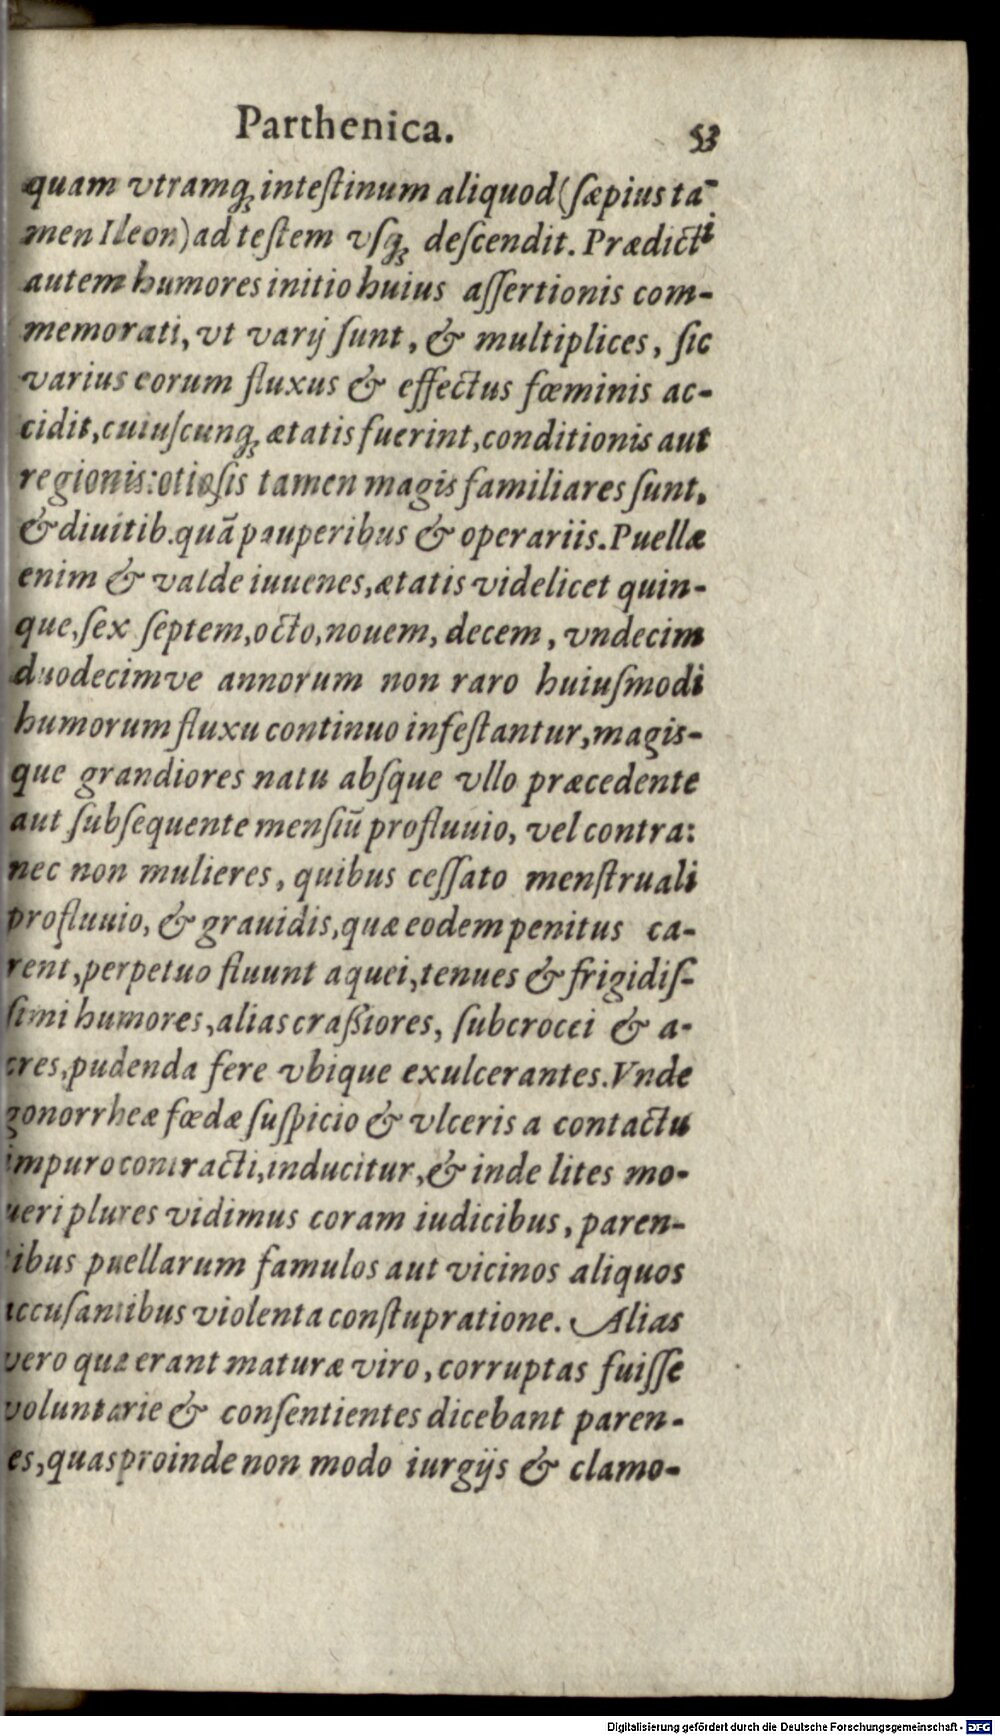 Parthenica. 53
quam vtramq́ꝫ inteſtinum aliquod (ſæpius ta¯
men Ileon) ad teſtem vſqꝫ deſcendit. Prædicti
autem humores initio huius aſſertionis com-
memorati, vt varij ſunt, & multiplices, ſic
varius eorum fluxus & effectus fœminis ac-
cidit, cuiuſcunqꝫ ætatis fuerint, conditionis aut
regionis: otioſis tamen magis familiares ſunt,
& diuitib. quã pauperibus & operariis. Puellæ
enim & valde iuuenes, ætatis videlicet quin-
que, ſex ſeptem, octo, nouem, decem, vndecim
duodecimve annorum non raro huiuſmodi
humorum fluxu continuo infeſtantur, magis-
que grandiores natu abſque vllo præcedente
aut ſubſequente menſiũ profluuio, vel contra:
nec non mulieres, quibus ceſſato menſtruali
profluuio, & grauidis, quæ eodem penitus ca-
rent, perpetuo fluunt aquei, tenues & frigidiſ-
ſimi humores, alias craſſiores, ſubcrocei & a-
cres, pudenda fere vbique exulcerantes. Vnde
gonorrheæ fœdæ ſuſpicio & vlceris a contactu
impuro contracti, inducitur, & inde lites mo-
ueri plures vidimus coram iudicibus, paren-
tibus puellarum famulos aut vicinos aliquos
accuſantibus violenta conſtupratione. Alias
vero quæ erant maturæ viro, corruptas fuiſſe
voluntarie & conſentientes dicebant paren-
es, quas proinde non modo iurgijs & clamo-
Digitalisierung gefördert durch die Deutsche Forschungsgemeinschaft - DFG